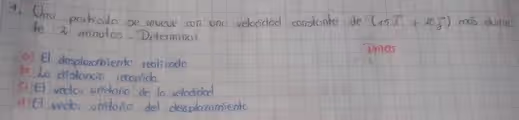 4. Una partícula se mueve con una velocidad constante de (15 i + 20 j) m/s durante
te 2 minutos. Determinar
a) El desplazamiento realizado
b) La distancia recorrida
c) El vector unitario de la velocidad
d) El vector unitario del desplazamiento